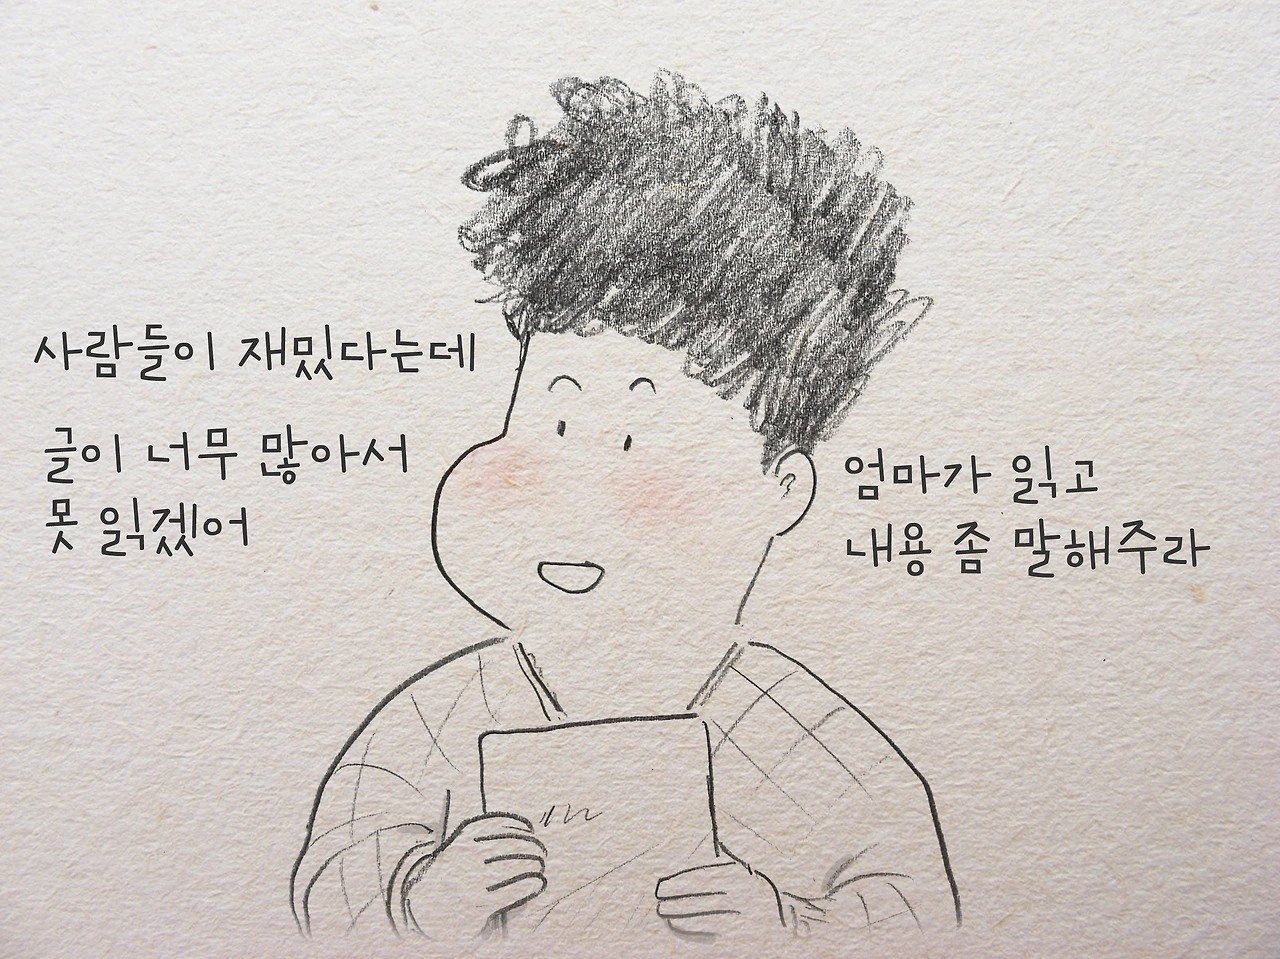 사람들이 재밌다는데
글이 너무 많아서
못 읽겠어
엄마가 읽고
내용 좀 말해주라